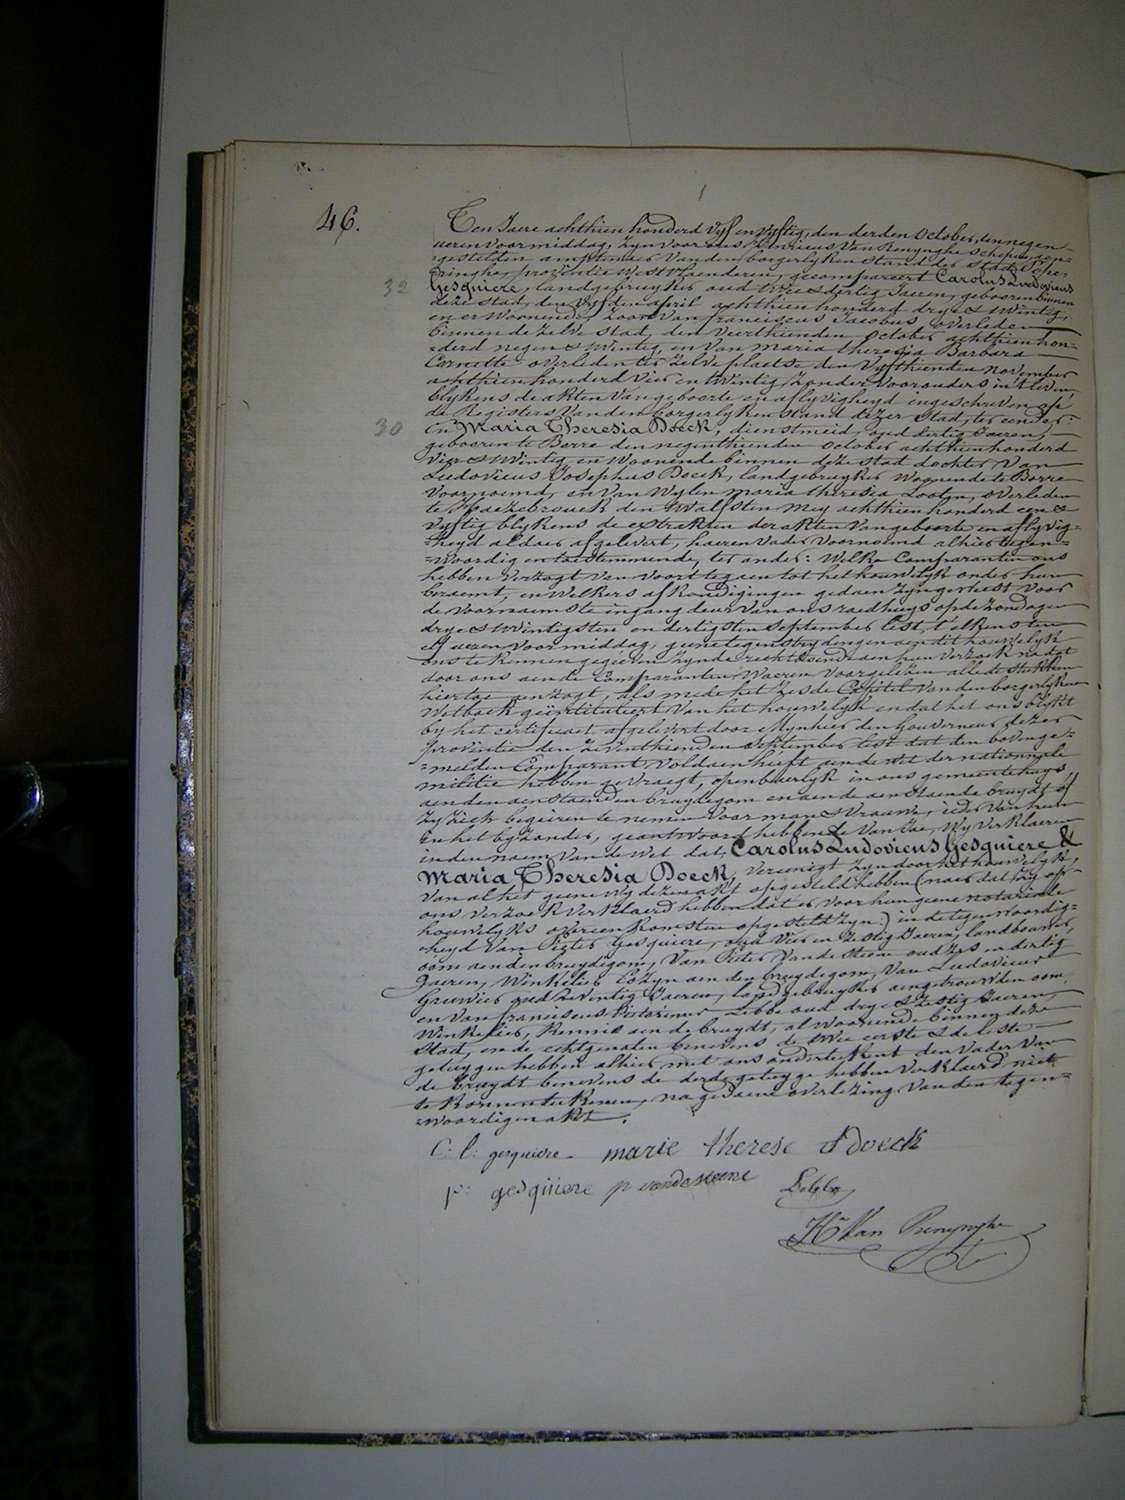 46.
Ten Jaere achthien honderd vyf en vyftig, den derden october, ten negen
ueren voormiddag, zyn voor ons Henricus Van Renynghe schepen, aen-
=gestelden amptenaer van den borgerlyken stand der stad Pope-
=ringhe, provintie West Vlaenderen, gecompareert Carolus Ludovicus
32
Gesquiere, landgebruyker oud twee & dertig Jaeren, gebooren binnen
deze stad, den vyfden april achthien honderd drye & twintig,
en er woonende, zoon van franciscus Jacobus overleden
binnen de zelve stad, den veerthienden october achthien hon-
=derd negen & twintig, en van maria theresia Barbara
Cornette overleden ter zelve plaetse den vyfthienden november
achthien honderd vier en twintig, zonder voorouders in 't leven
blykens de akten van geboorte en aflyvigheyd ingeschreven op
de Registers van den borgerlyken stand dezer stad, ter eender:
30
En Maria Theresia Doeck, dienstmeid, oud dertig Jaeren,
gebooren te Borre den negenthienden october achthien honderd
vier & twintig, en woonende binnen deze stad dochter van
Ludovicus Josephus Doeck, landgebruyker woonende te Borre
voornoemd, en van wylen maria theresia Looten, overleden
te Haezebrouck den twalfsten mey achthien honderd een &
vyftig blykens de extrakten der akten van geboorte en aflyvig-
=heyd aldaer afgelevert, haeren vader voornoemd alhier tegen-
=woordig en toestemmende, ter ander: Welke Comparanten ons
hebben verzogt van voort te gaen tot het houwelyk onder hun
beraemt, en welkers afkondigingen gedaen zyn geweest voor
de voornaemste ingang deur van ons raedhuys op de zondagen
drye & twintigsten en dertigsten september lest, t'elkens ten
elf ueren voormiddag, geene tegenstrydingen aen dit houwelyk
ons te kennen gegeven zynde rechtdoende aen hun verzoek na dat
door ons aen de Comparanten waeren voorgelezen alle de stukken
hiertoe aenzogt, als mede het zesde Capitel van den borgerlyken
Wetboek geintituleert van het houwelyk en dal het ons blykt
by het certificaet afgelevert door Mynheer den Gouverneur dezer
provintie den zeventhienden september lest dat den bovenge-
=melden Comparant voldaen heeft aen de wet der nationnale
militie hebben gevraegt, openbaerlyk in ons gemeentehuys,
aen den aenstaenden bruydegom en aen de aenstaende bruydt of
zy zich begeiren te nemen voor man & vrouwe, ieder van hun
in het byzonder, geantwoord hebbende van Jae, Wy verklaeren
in den naem van de wet dat, Carolus Ludovicus Gesquiere &
Maria Theresia Doeck, vereenigt zyn door het houwelyk,
van al het geene wy dezen akt opgesteld hebben (naer dat zy op
ons verzoek verklaerd hebben dat er voor hun geene notariale
houwelyks overeenkomsten opgesteld zyn) in de tegenwoordig-
=heyd van Pieter Gesquiere, oud vier en zestig Jaeren, landbouwer,
oom aen den bruydegom, van Pieter Vande Steene oud zes en dertig
Jaeren, Winkelier Cozyn aen den bruydegom, van Ludovicus
Gruwier oud zeventig Jaeren, landgebruyker aengetrouwden oom,
en van franciscus Lebbe oud drye & zestig Jaeren,
Winkelier, Kennis aen de bruydt, al woonende binnen deze
stad, en de echtgenaten benevens de twee eerste & de leste
getuygen hebben alhier met ons onderteekent den vader van
de bruydt benevens de derde getuyge hebben verklaerd niet
te konnen teekenen, na gedaene overlezing van den tegen-
=woordigen akt.
C: l: gesquiere marie therese doeck
p: gesquiere p vandesteene Lebbe
He Van Renynghe